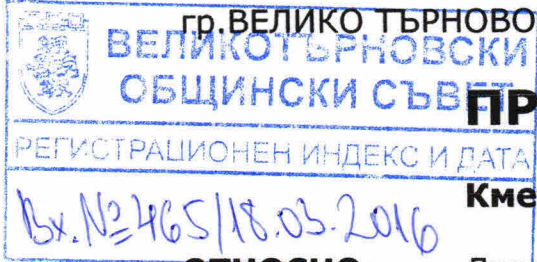 гр.ВЕЛИКО ТЪРНОВО
ВЕЛИКОТЪРНОВСКИ
ОБЩИНСКИ СЪВЕТ
ПР
РЕГИСТРАЦИОНЕН ИНДЕКС И ДАТА
Кме
Вх.№465/18.03.2016
ОТНОСНО